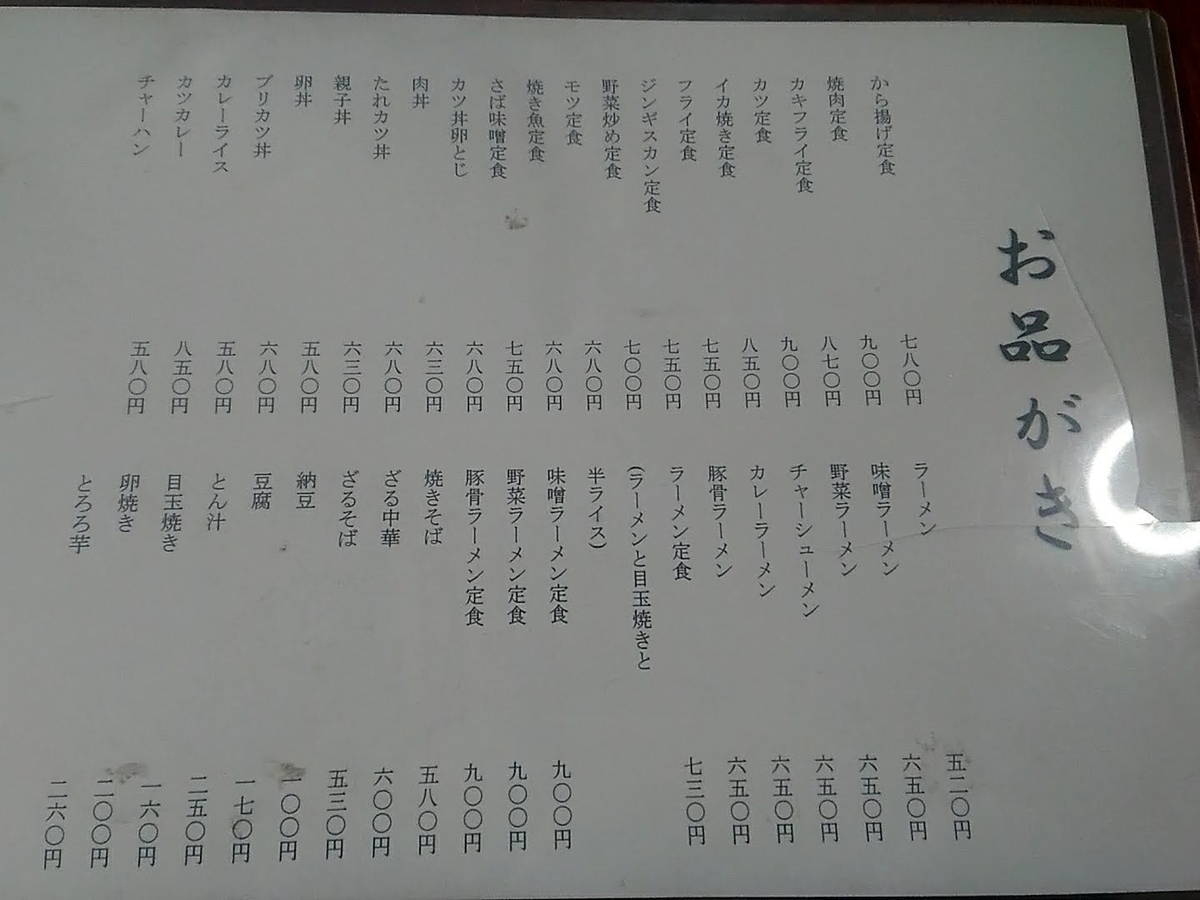 お品がき
から揚げ定食 七八〇円
焼肉定食 九〇〇円
カキフライ定食 八七〇円
カツ定食 九〇〇円
イカ焼き定食 八五〇円
フライ定食 七五〇円
ジンギスカン定食 七五〇円
野菜炒め定食 七〇〇円
モツ定食 六八〇円
焼き魚定食 六八〇円
さば味噌定食 七五〇円
カツ丼卵とじ 六八〇円
肉丼 六三〇円
たれカツ丼 六八〇円
親子丼 六三〇円
卵丼 五八〇円
ブリカツ丼 六八〇円
カレーライス 五八〇円
カツカレー 八五〇円
チャーハン 五八〇円
ラーメン 五二〇円
味噌ラーメン 六五〇円
野菜ラーメン 六五〇円
チャーシューメン 六五〇円
カレーラーメン 六五〇円
豚骨ラーメン 六五〇円
ラーメン定食 七三〇円
(ラーメンと目玉焼きと
半ライス)
味噌ラーメン定食 九〇〇円
野菜ラーメン定食 九〇〇円
豚骨ラーメン定食 九〇〇円
焼きそば 五八〇円
ざる中華 六〇〇円
ざるそば 五三〇円
納豆 一〇〇円
豆腐 一七〇円
とん汁 二五〇円
目玉焼き 一六〇円
卵焼き 二〇〇円
とろろ芋 二六〇円